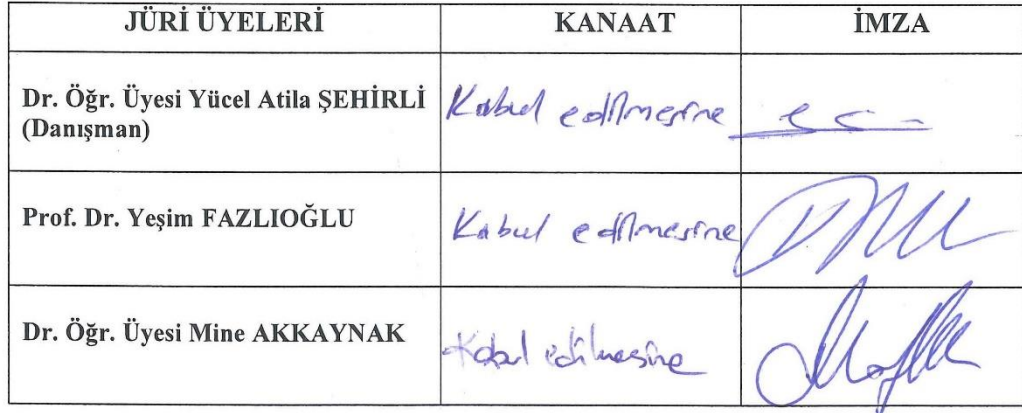 JÜRİ ÜYELERİ KANAAT İMZA
Dr. Öğr. Üyesi Yücel Atila ŞEHİRLİ Kabul edilmesine
(Danışman)
Prof. Dr. Yeşim FAZLIOĞLU Kabul edilmesine
Dr. Öğr. Üyesi Mine AKKAYNAK Kabul edilmesine